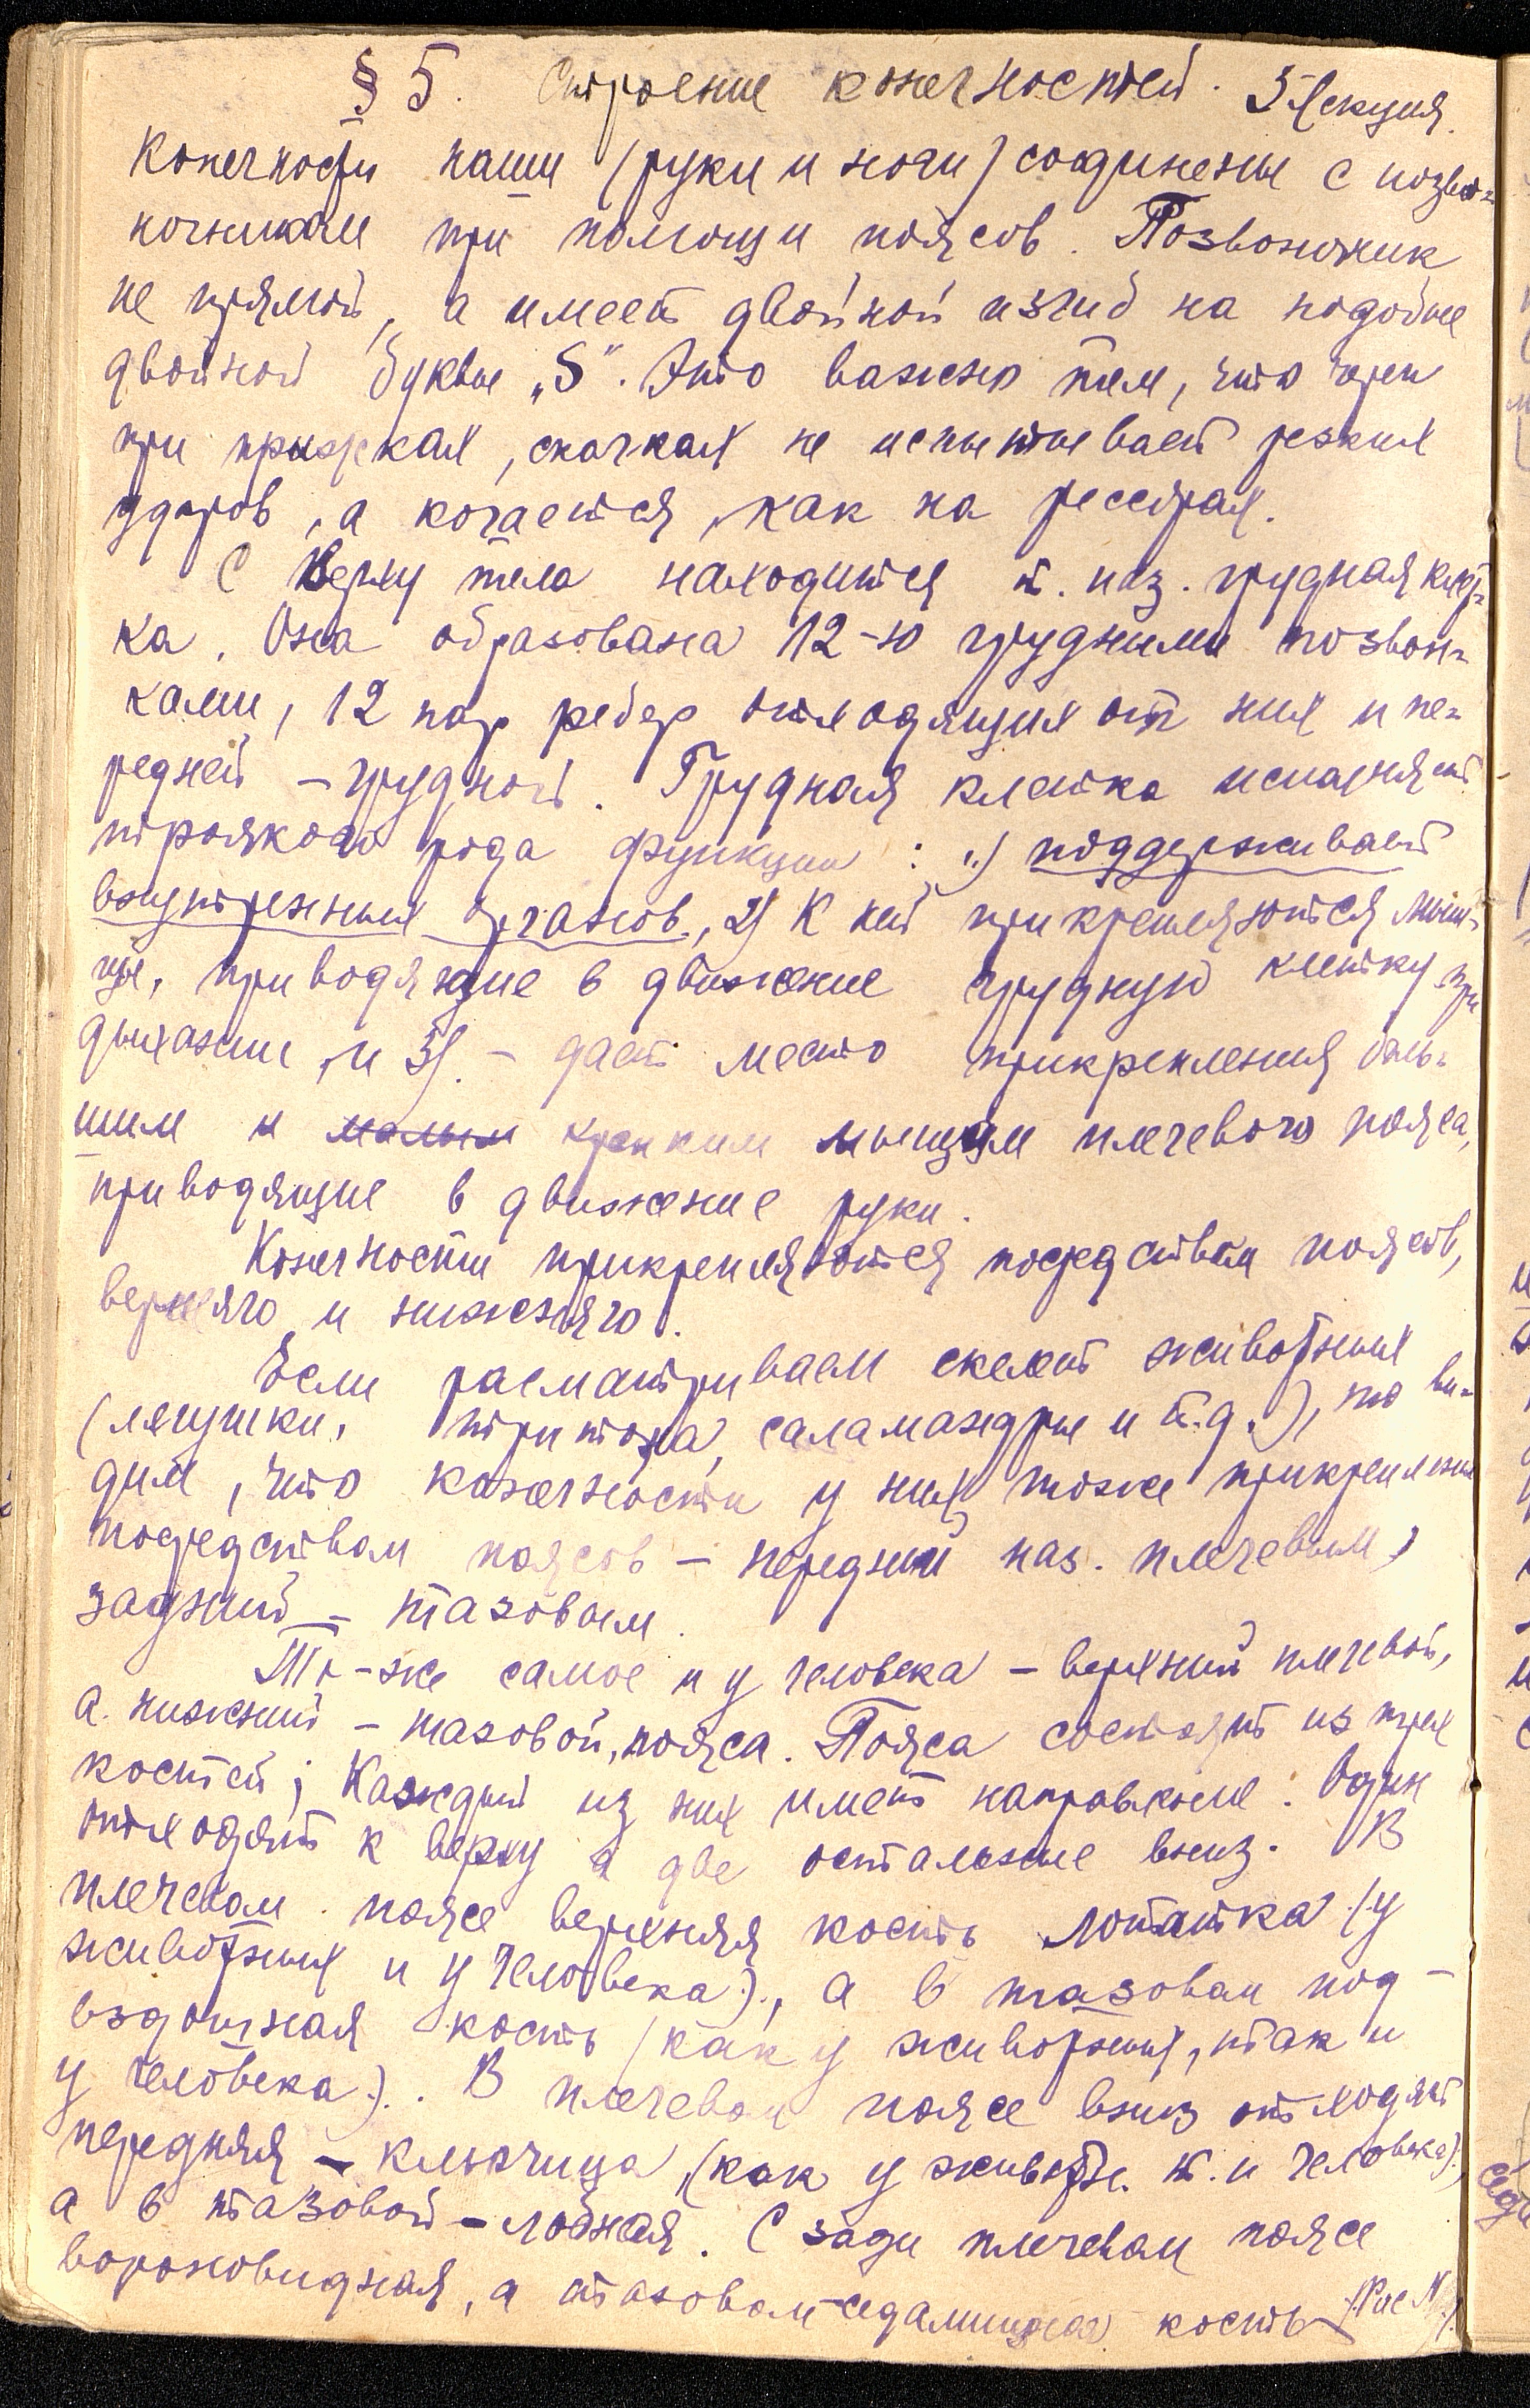 § 5. Строение конечностей. 5 лекция.
Конечности наши (руки и ноги) соединены с позво-
ночником при помощи поясов. Позвоночник
не прямой, а имеет двойной изгиб на подобие
двойной буквы „S". Это важно тем, что череп
при прыжках, скачках не испытывает резких
ударов, а качается, как на рессорах.
С верху тела находится т. наз. грудная клет-
ка. Она образована 12-ю грудными позвон-
ками, 12 пар ребер отходящих от них и пе-
редней – грудной. Грудная клетка исполняет
троякого рода функции: 1) поддерживает
внутренних органов, 2) К ней прикрепляются мыш-
цы, приводящие в движение грудную клетку при
дыхании, и 3). – дает место прикрепления боль-
шим и малым крепким мышцам плечевого пояса,
приводящие в движение руки.
Конечности прикрепляются посредством поясов,
верхняго и нижняго.
Если расматриваем скелет животных
(лягушки, тритона, саламандры и т.д.), то ви-
дим, что конечности у них тоже прикреплены
посредством поясов – передний наз. плечевым,
задний – тазовым.
То-же самое и у человека – верхний плечевой,
а нижний – тазовой, пояса. Пояса состоят из трех
костей; Каждый из них имеет направление. Один
отходят к верху а две остальные вниз. В
плечевом поясе верхняя кость лопатка (у
животных и у человека), а в тазовом под-
вздошная кость (как у животных, так и
у человека). В плечевом поясе вниз отходят
передняя – ключица, (как у животн. т. и человека),
а в тазовой – лобная. С зади плечевом поясе
вороновидная, а тазовом – седалищная кость (Рис №